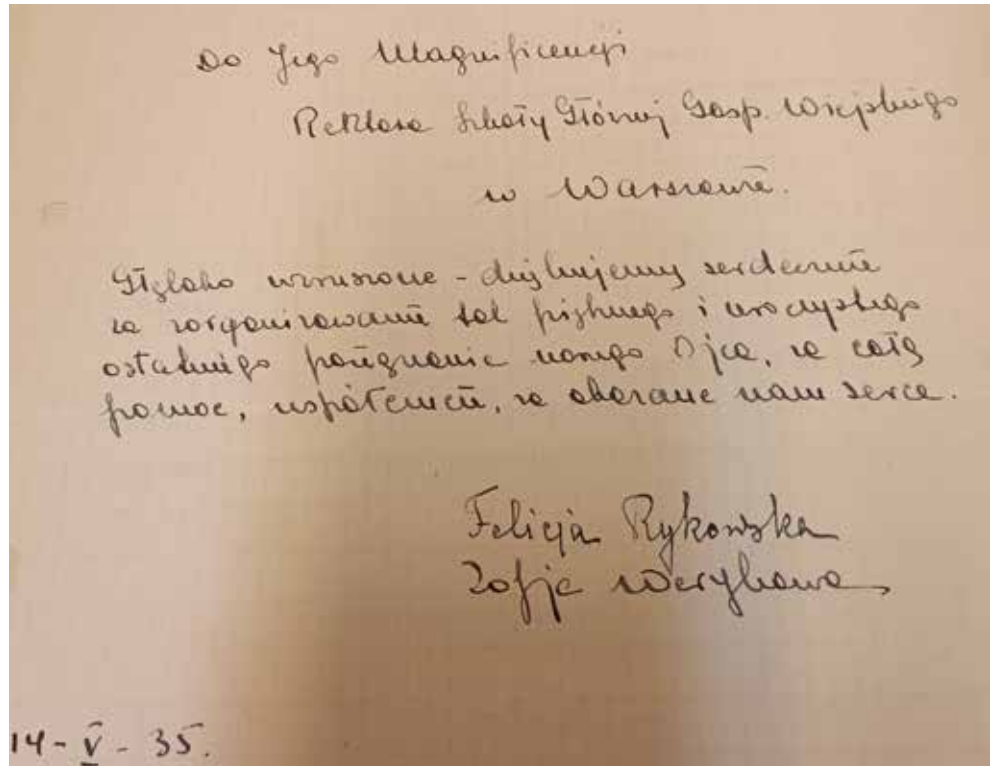 Do Jego Magnificencji
Rektora Szkoły Głównej Gosp. Wiejskiego
w Warszawie.
Głęboko wzruszone - dziękujemy serdecznie
za zorganizowanie tak pięknego i uroczystego
ostatniego pożegnania naszego Ojca, za całą
pomoc, współczucie, za okazane nam serce.
Felicja Rykowska
Zofja Werykowa
14-V-35.